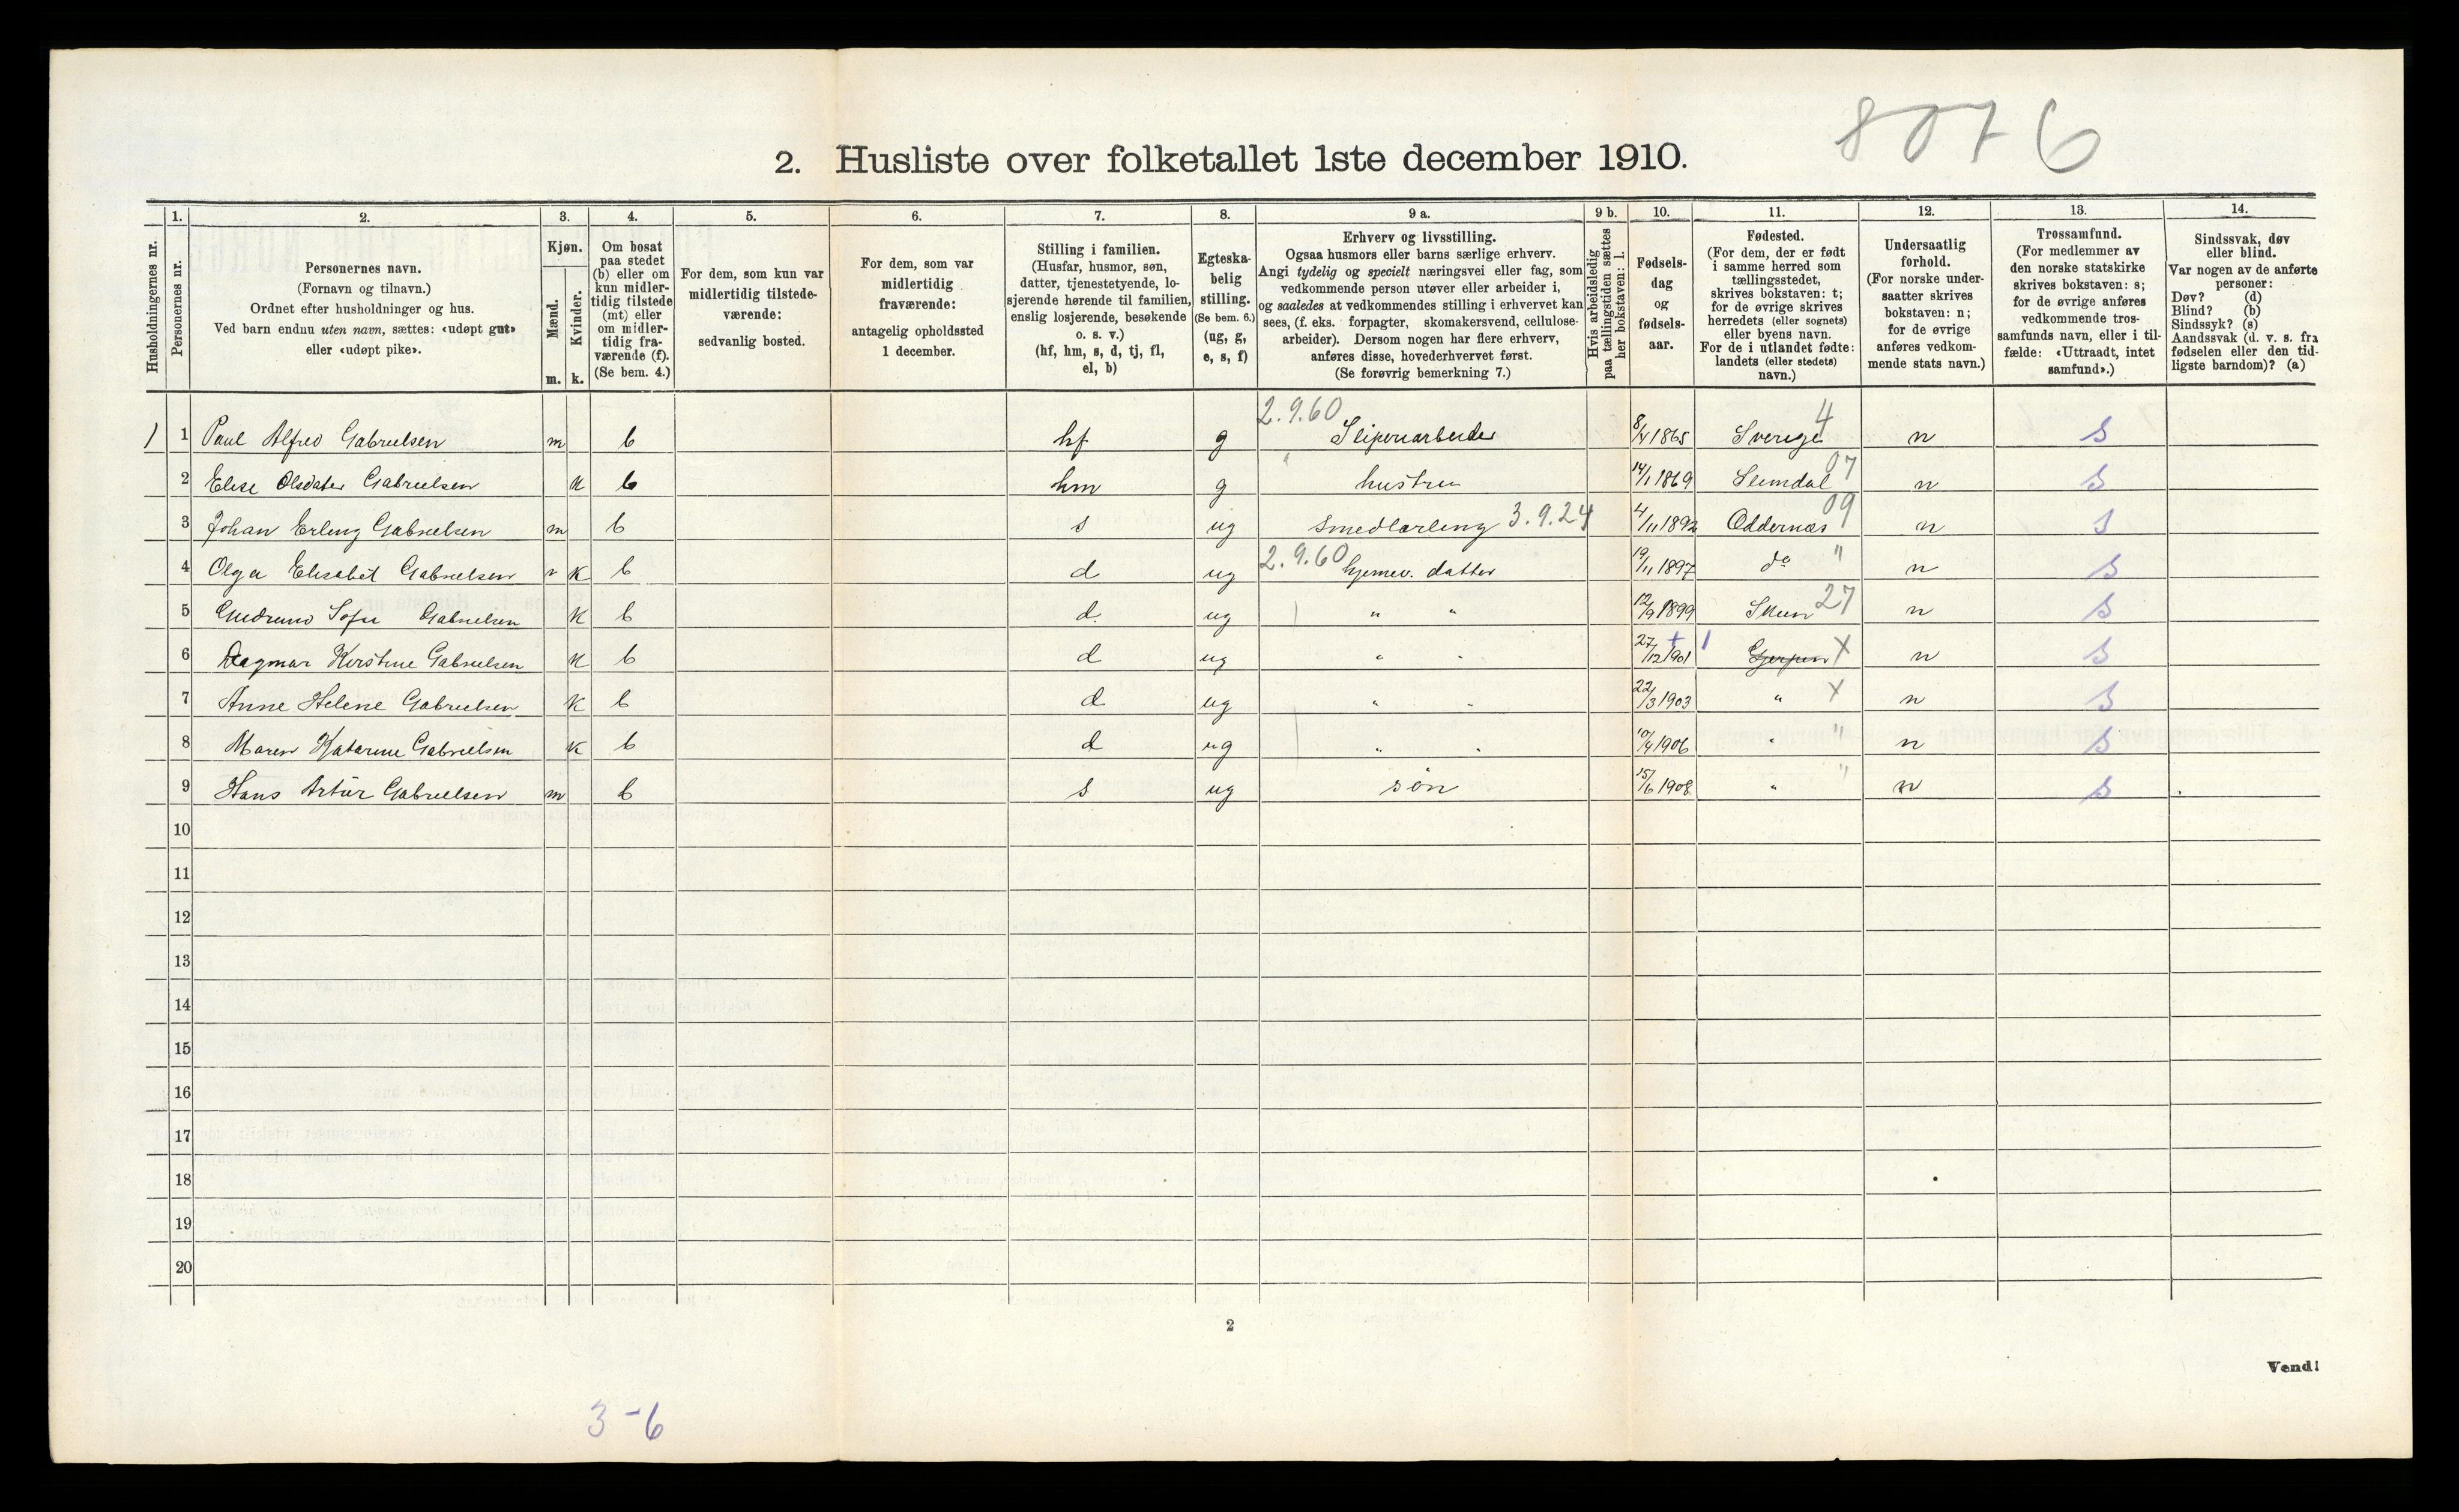 8076
2. Husliste over folketallet 1ste december 1910.
1. 2. 3. 4. 5. 6. 7. 8. 9 a. 9 b. 10. 11. 12. 13. 14.
Husholdningernes nr.
Personernes nr.
Personernes navn.
(Fornavn og tilnavn.)
Ordnet efter husholdninger og hus.
Ved barn endnu uten navn, sættes: «udøpt gut»
eller «udøpt pike».
Kjøn.
Mænd.
Kvinder.
m. k.
Om bosat
paa stedet
(b) eller om
kun midler-
tidig tilstede
(mt) eller
om midler-
tidig fra-
værende (f).
(Se bem. 4.)
For dem, som kun var
midlertidig tilstede-
værende:
sedvanlig bosted.
For dem, som var
midlertidig
fraværende:
antagelig opholdssted
1 december.
Stilling i familien.
(Husfar, husmor, søn,
datter, tjenestetyende, lo-
sjerende hørende til familien,
enslig losjerende, besøkende
o. s. v.)
(hf, hm, s, d, tj, fl,
el, b)
Egteska-
belig
stilling.
(Se bem. 6.)
(ug, g,
e, s, f)
Erhverv og livsstilling.
Ogsaa husmors eller barns særlige erhverv.
Angi tydelig og specielt næringsvei eller fag, som
vedkommende person utøver eller arbeider i,
og saaledes at vedkommendes stilling i erhvervet kan
sees, (f. eks. forpagter, skomakersvend, cellulose-
arbeider). Dersom nogen har flere erhverv,
anføres disse, hovederhvervet først.
(Se forøvrig bemerkning 7.)
Hvis arbeidsledig
paa tællingstiden sættes
her bokstaven: l.
Fødsels-
dag
og
fødsels-
aar.
Fødested.
(For dem, der er født
i samme herred som
tællingsstedet,
skrives bokstaven: t;
for de øvrige skrives
herredets (eller sognets)
eller byens navn.
For de i utlandet fødte:
landets (eller stedets)
navn.)
Undersaatlig
forhold.
(For norske under-
saatter skrives
bokstaven: n;
for de øvrige
anføres vedkom-
mende stats navn.)
Trossamfund.
(For medlemmer av
den norske statskirke
skrives bokstaven: s;
for de øvrige anføres
vedkommende tros-
samfunds navn, eller i til-
fælde: «Uttraadt, intet
samfund».)
Sindssvak, døv
eller blind.
Var nogen av de anførte
personer:
Døv? (d)
Blind? (b)
Sindssyk? (s)
Aandssvak (d. v. s. fra
fødselen eller den tid-
ligste barndom)? (a)
1 1 Paul Alfred Gabrielsen m b hf g 2.9.60 Sliperiarbeider 8/4 1865 Sverige 4 n s
2 Elise Olsdater Gabrielsen k b hm g hustru 14/1 1869 Slemdal 07 n s
3 Johan Erling Gabrielsen m b s ug Smedlærling 3.9.24 4/11 1892 Oddernæs 09 n s
4 Olga Elisabet Gabrielsen K b d ug 2.9.60 hjemev. datter 19/11 1897 do " n s
5 Gudrund Sofie Gabrielsen K b d ug " " 12/9 1899 Skien 27 n s
6 Dagmar Kirstine Gabrielsen K b d ug " " 27/12 1901 + 1 Gjerpen X n s
7 Anne Helene Gabrielsen K b d ug " " 22/3 1903 " X n s
8 Maren Katarine Gabrielsen K b d ug " " 10/4 1906 " " n s
9 Hans Artur Gabrielsen m b s ug søn 15/6 1908 " " n s
10
11
12
13
14
15
16
17
18
19
20
2
Vend!
3-6